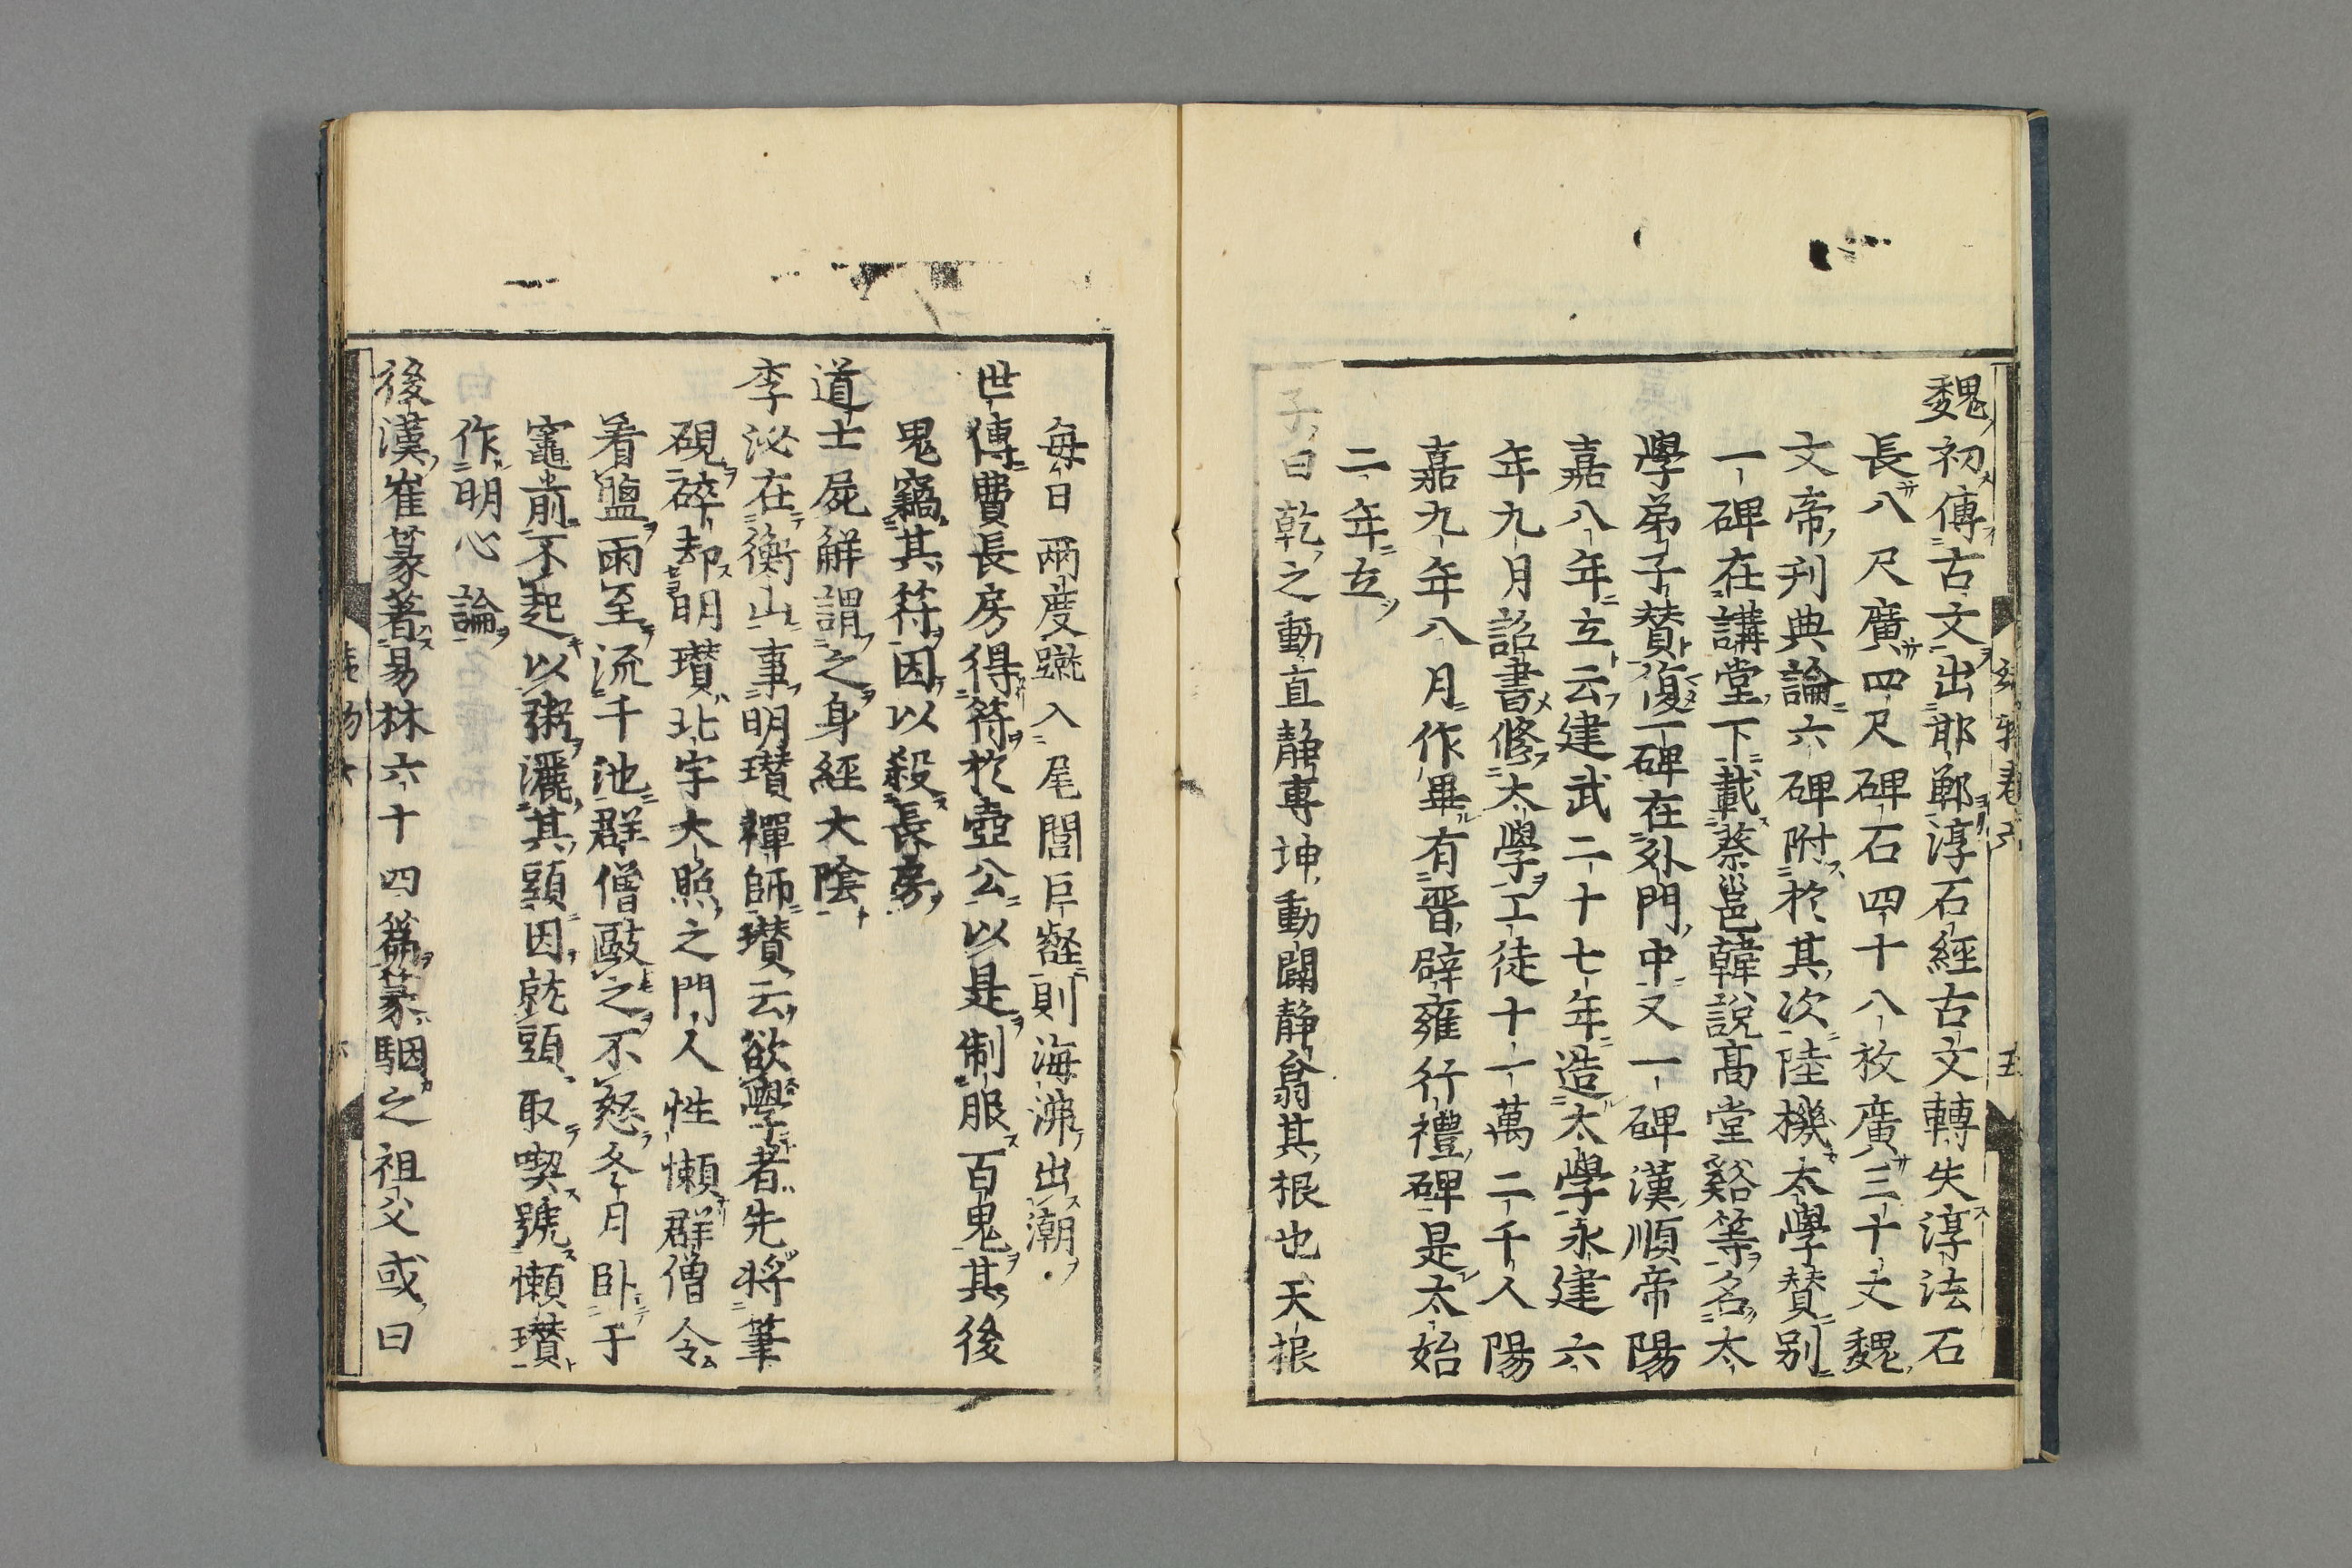 魏初傳古文出邯鄲淳石經古文轉失淳法石
長八尺廣四尺碑石四十八枚廣三十丈魏
文帝刋典論六碑附於其次陸機太學賛别
一碑在講堂下載蔡邕韓説髙堂谿等名太
學弟子賛復一碑在外門中又一碑漢順帝陽
嘉八年立云建武二十七年造太學永建六
年九月詔書修太學工徒十一萬二千人陽
嘉九年八月作畢有晋辟雍行禮碑是太始
二年立
子曰乾之動直静専坤動闢静翕其根也天根
毎日兩度蹴入尾閭巨壑則海沸出潮
世傳費長房得符於壺公以是制服百鬼其後
鬼竊其符因以殺長房
道士屍解謂之身經大隂
李泌在衡山事明瓚禪師瓚云欲學者先將筆
硯碎却明瓚北宗大照之門人性懶群僧令
看鹽雨至流千池群僧毆之不怒冬月卧于
竈前不起以粥灑其頭因就頭取喫號懶瓚
作明心論
後漢崔篆著易林六十四篇篆駰之祖父或曰